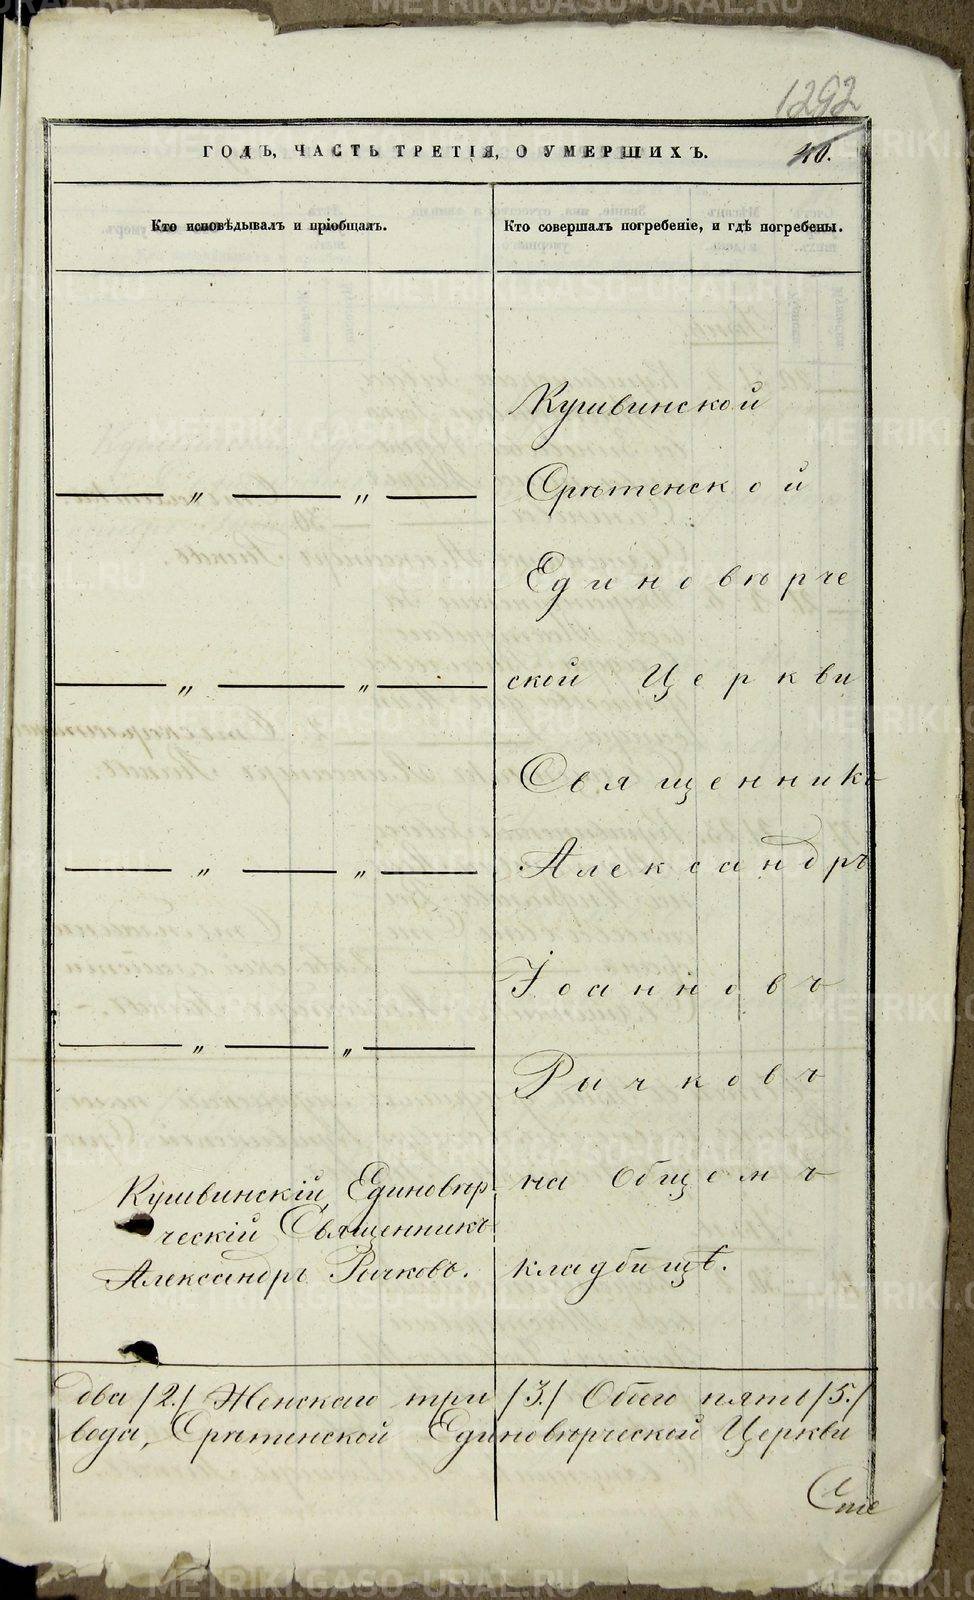 1292
ГОДЪ, ЧАСТЬ ТРЕТІЯ, О УМЕРШИХЪ.
40.
Кто исповѣдывалъ и пріобщалъ.
Кто совершалъ погребеніе, и гдѣ погребены.
Кушвинской
— „ — „ —
Срѣтенской
Единовѣрче
— „ — „ —
ской Церкви
Священникъ
— „ — „ —
Александръ
Іоанновъ
— „ — „ —
Рычковъ
на Общемъ
Кушвинскій Единовѣр
ческій Священникъ
Александръ Рычковъ.
кладбищѣ.
два /2./ Женскаго три /3./ Обоего пять /5./
вода, Срѣтенской Единовѣрческой Церкви
METRIKI.GASO-URAL.RU